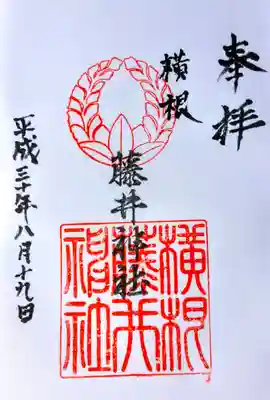 奉拝
横根
藤井神社
横根
藤井
神社
平成三十年八月十九日